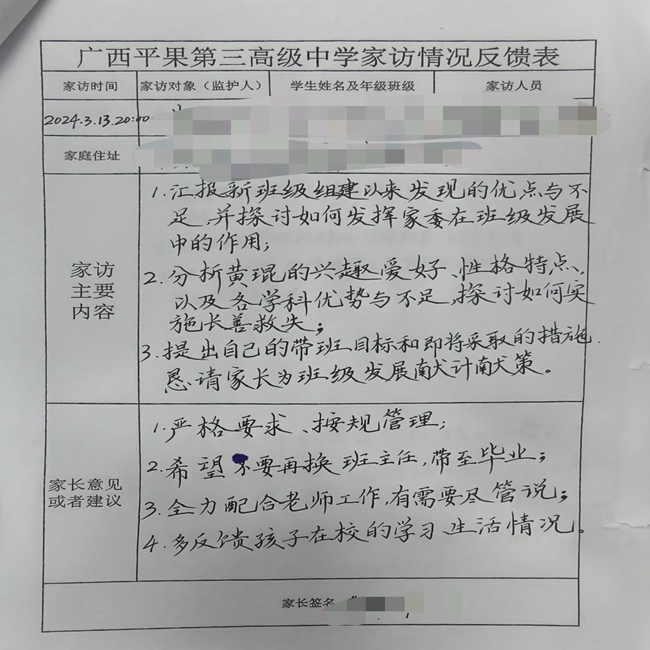 广西平果第三高级中学家访情况反馈表
家访时间 家访对象（监护人） 学生姓名及年级班级 家访人员
2024.3.13.20:00
家庭住址
家访
主要
内容
1.汇报新班级组建以来发现的优点与不
足,并探讨如何发挥家委在班级发展
中的作用;
2.分析黄琨的兴趣爱好、性格特点、
以及各学科优势与不足,探讨如何实
施长善救失;
3.提出自己的带班目标和即将采取的措施.
恳请家长为班级发展献计献策。
家长意见
或者建议
1.严格要求、按规管理;
2.希望不要再换班主任,带至毕业;
3.全力配合老师工作,有需要尽管说;
4.多反馈孩子在校的学习生活情况。
家长签名